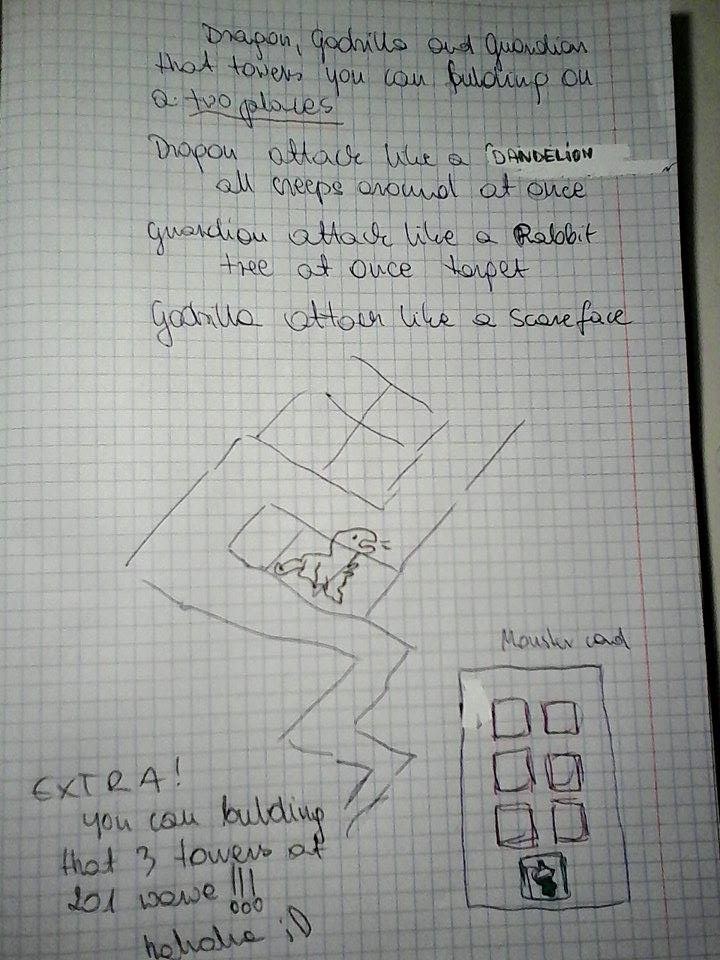 Dragon, Godrilla and guardian
that towers you can bulding on
a two places
Dragon attack like a DANDELION
all creeps around at once
guardian attack like a Rabbit
tree at once target
Godrilla attack like a Scareface
Monster card
EXTRA!
you can bulding
that 3 towers at
201 wave !!!
hahaha ;D